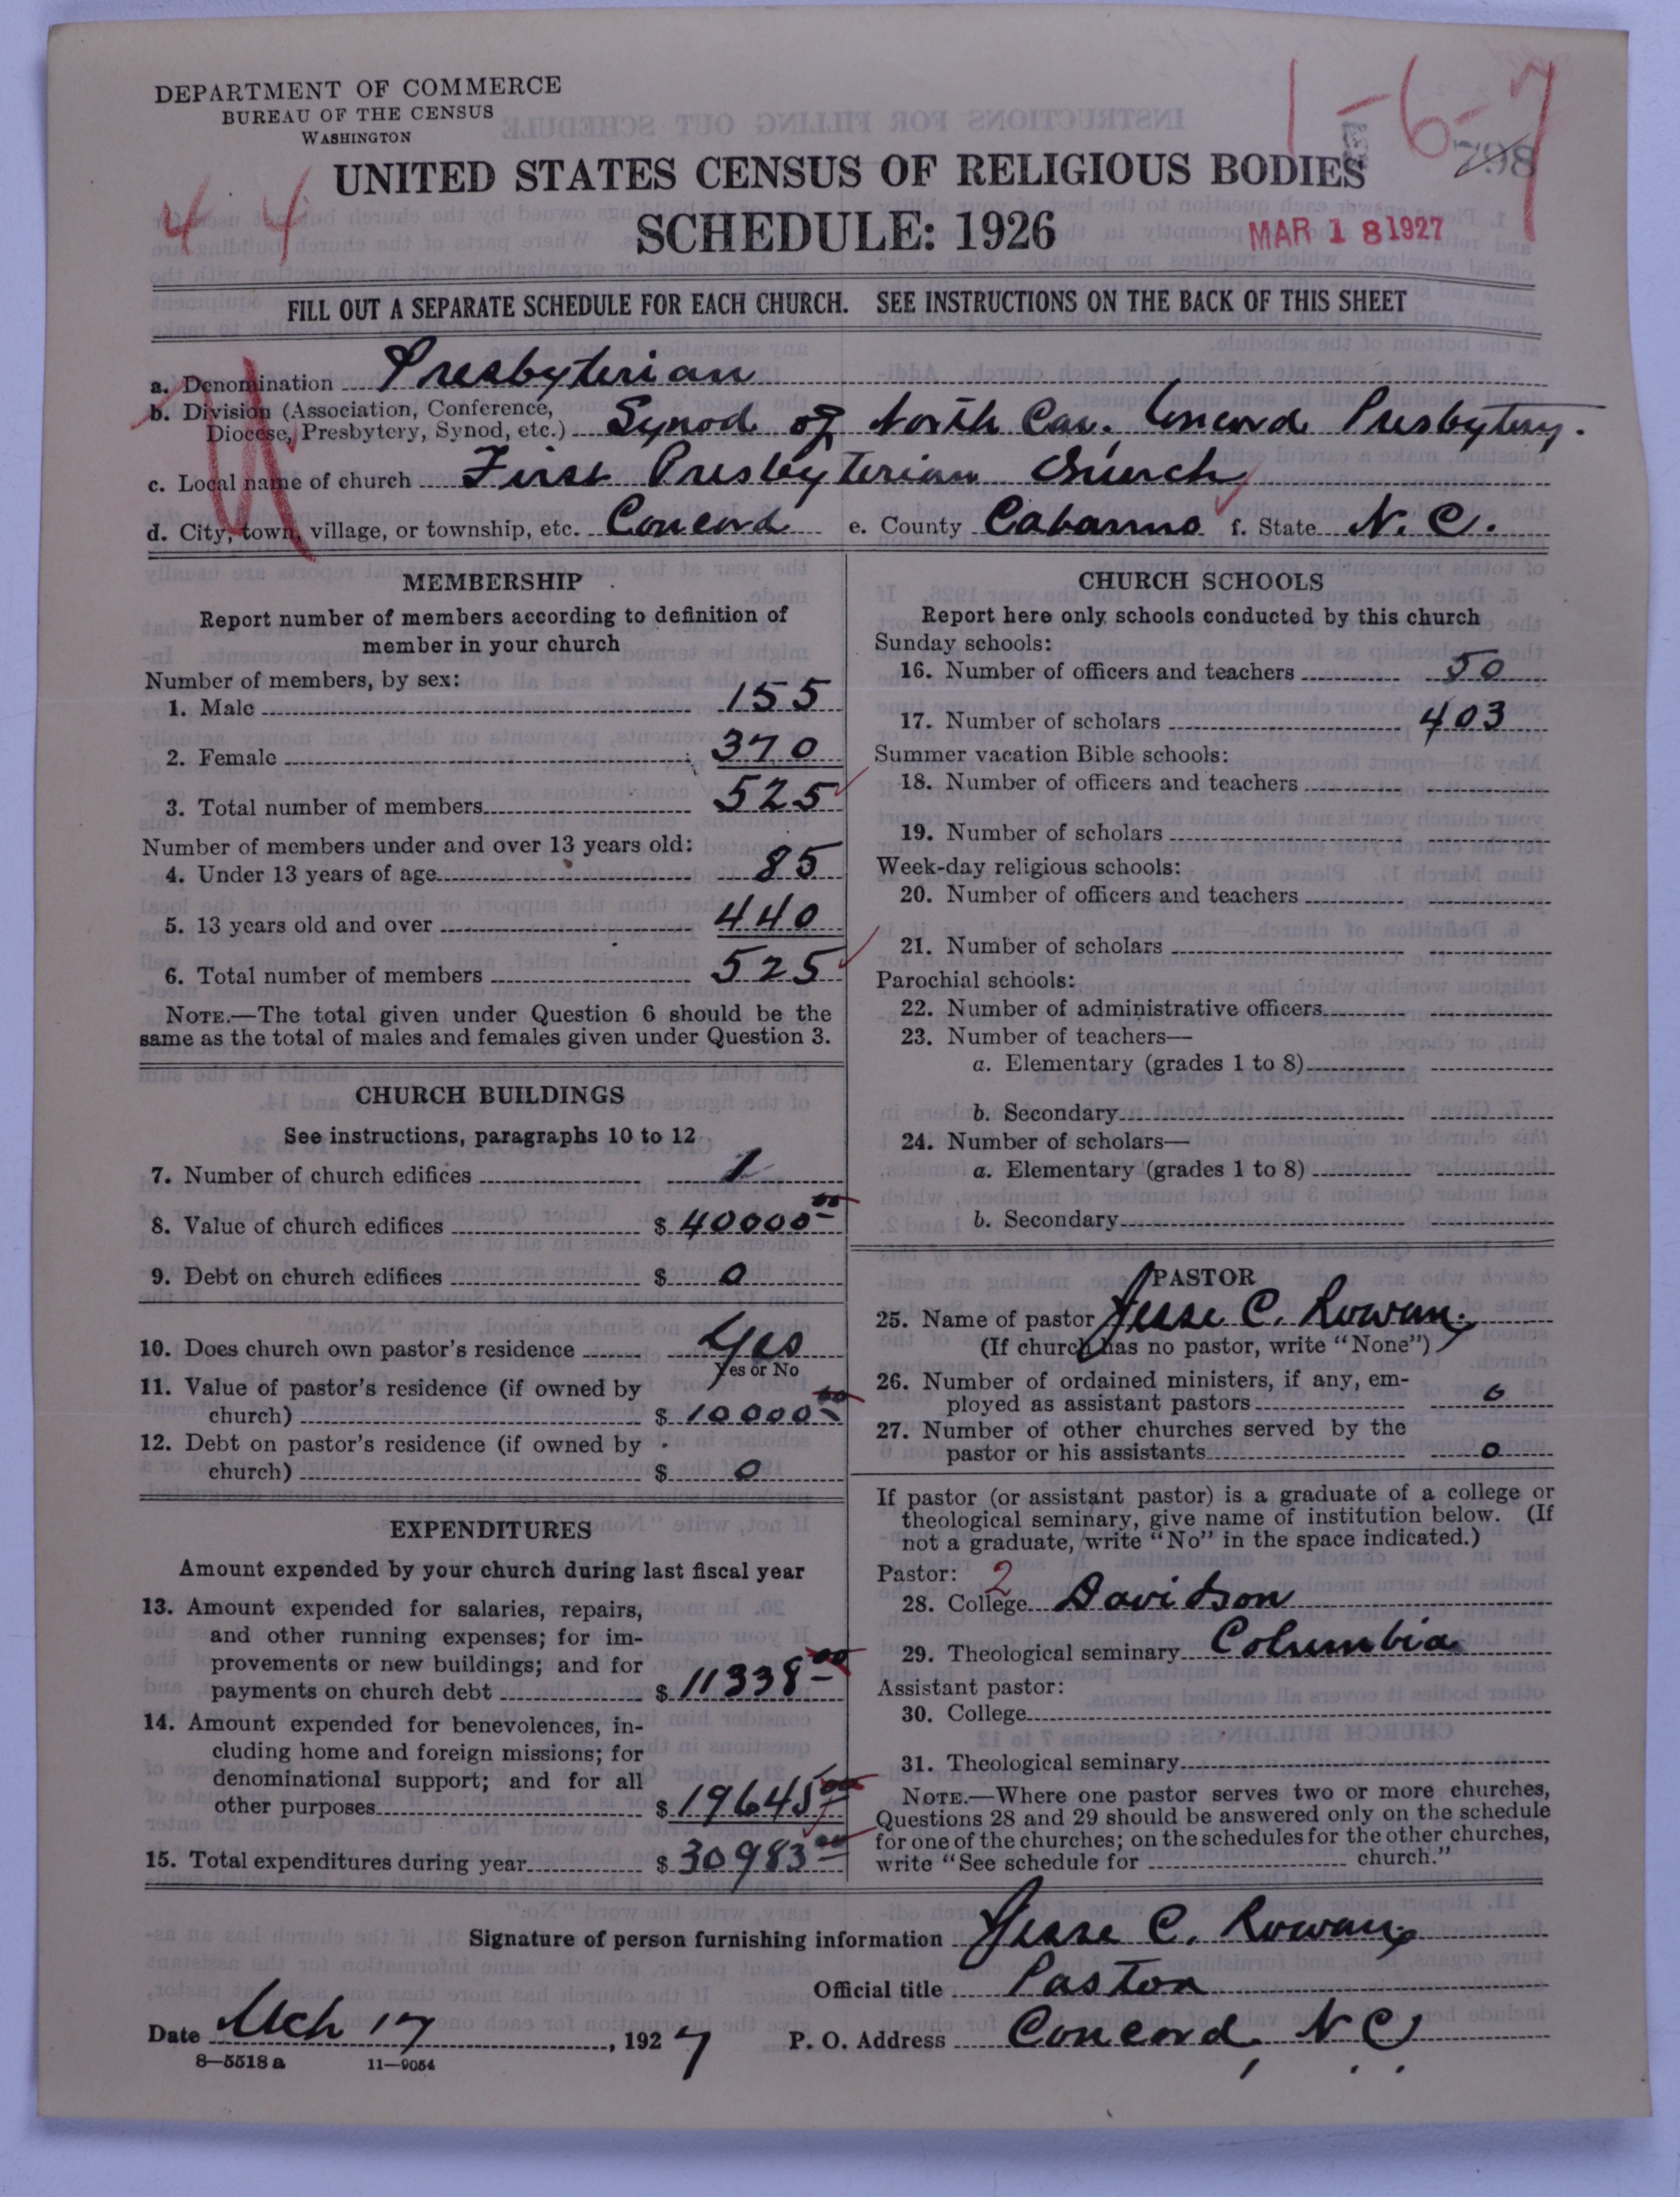 DEPARTMENT OF COMMERCE
BUREAU OF THE CENSUS
WASHINGTON
1-6-7
798
UNITED STATES CENSUS OF RELIGIOUS BODIES
4 4
SCHEDULE: 1926
MAR 18 1927
FILL OUT A SEPARATE SCHEDULE FOR EACH CHURCH. SEE INSTRUCTIONS ON THE BACK OF THIS SHEET
a. Denomination Presbyterian
b. Division (Association, Conference,
Diocese, Presbytery, Synod, etc.) Synod of North Car. Concord Presbytery.
c. Local name of church First Presbyterian Church
d. City, town, village, or township, etc. Concord e. County Cabarrus f. State N. C.
MEMBERSHIP
Report number of members according to definition of
member in your church
Number of members, by sex:
1. Male 155
2. Female 370
3. Total number of members 525
Number of members under and over 13 years old:
4. Under 13 years of age 85
5. 13 years old and over 440
6. Total number of members 525
NOTE.—The total given under Question 6 should be the
same as the total of males and females given under Question 3.
CHURCH BUILDINGS
See instructions, paragraphs 10 to 12
7. Number of church edifices 1
8. Value of church edifices $ 40000 00
9. Debt on church edifices $ 0
10. Does church own pastor's residence Yes
Yes or No
11. Value of pastor's residence (if owned by
church) $ 10000 00
12. Debt on pastor's residence (if owned by
church) $ 0
EXPENDITURES
Amount expended by your church during last fiscal year
13. Amount expended for salaries, repairs,
and other running expenses; for im-
provements or new buildings; and for
payments on church debt $ 11338 00
14. Amount expended for benevolences, in-
cluding home and foreign missions; for
denominational support; and for all
other purposes $ 19645 00
15. Total expenditures during year $ 30983 00
CHURCH SCHOOLS
Report here only schools conducted by this church
Sunday schools:
16. Number of officers and teachers 50
17. Number of scholars 403
Summer vacation Bible schools:
18. Number of officers and teachers
19. Number of scholars
Week-day religious schools:
20. Number of officers and teachers
21. Number of scholars
Parochial schools:
22. Number of administrative officers
23. Number of teachers—
a. Elementary (grades 1 to 8)
b. Secondary
24. Number of scholars—
a. Elementary (grades 1 to 8)
b. Secondary
PASTOR
25. Name of pastor Jesse C. Rowan.
(If church has no pastor, write "None")
26. Number of ordained ministers, if any, em-
ployed as assistant pastors 0
27. Number of other churches served by the
pastor or his assistants 0
If pastor (or assistant pastor) is a graduate of a college or
theological seminary, give name of institution below. (If
not a graduate, write "No" in the space indicated.)
Pastor: 2
28. College Davidson
29. Theological seminary Columbia
Assistant pastor:
30. College
31. Theological seminary
NOTE.—Where one pastor serves two or more churches,
Questions 28 and 29 should be answered only on the schedule
for one of the churches; on the schedules for the other churches,
write "See schedule for church."
Signature of person furnishing information Jesse C. Rowan
Official title Pastor
Date Mch 17, 1927 P. O. Address Concord, N C
8—5518 a 11—9054